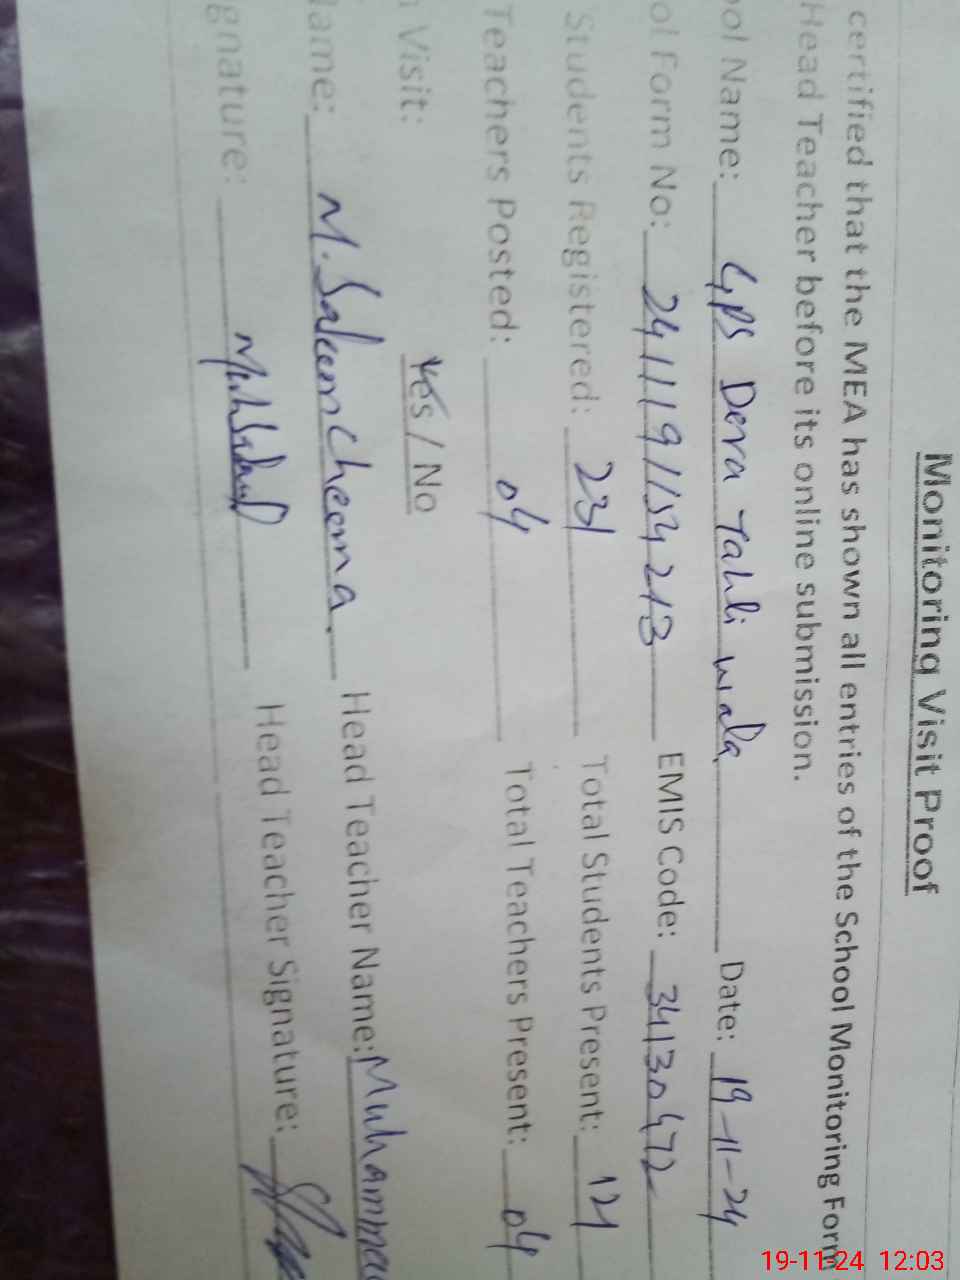 Monitoring Visit Proof
certified that the MEA has shown all entries of the School Monitoring Form
Head Teacher before its online submission.
ool Name: GPS Dera Tahli wala Date: 19-11-24
ol Form No: 241119/154213 EMIS Code: 34130472
Students Registered: 231 Total Students Present: 121
Teachers Posted: 04 Total Teachers Present: 04
Visit: Yes / No
Name: M. Saleem Cheema. Head Teacher Name: Muhammad
gnature: Head Teacher Signature:
19-11-24 12:03